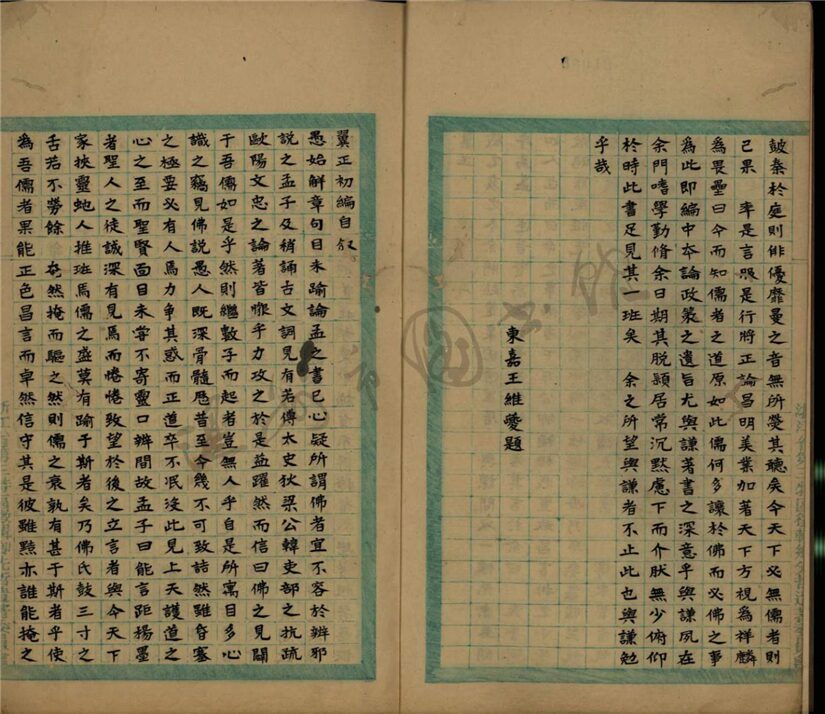 皷奏於庭則俳優靡曼之音無所熒其聽矣今天下必無儒者則
已果 率是言凞是行將正論昌明美業加著天下方視為祥麟
為畏壘曰今而知儒者之道原如此儒何多讓於佛而必佛之事
為此即編中夲論政策之遺旨尤與謙著書之深意乎與謙夙在
余門嗜學勤脩余日期其脱頴居常沉黙慮下而介肰無少俯仰
於時此書足見其一班矣 余之所望與謙者不止此也與謙勉
乎哉
東嘉王維夔題
翼正初編自敘
愚始解章句目未踰論孟之書已心疑所謂佛者宜不容於辨邪
說之孟子及稍誦古文詞見有若傅太史狄梁公韓吏部之抗疏
歐陽文忠之論著皆嘐乎力攻之於是益躍然而信曰佛之見闢
于吾儒如是乎然則繼數子而起者豈無人乎自是所寓目多心
識之竊見佛說愚人既深骨髓歷昔至今幾不可致詰然雖昏塞
之極要必有人焉力争其惑而正道卒不泯沒此見上天護道之
心之至而聖賢面目未甞不寄靈口辨間故孟子曰能言距楊墨
者聖人之徒誠深有見焉而惓惓致望於後之立言者與今天下
家挾靈蛇人推班馬儒之盛莫有踰于斯者矣乃佛氏鼓三寸之
舌若不勞餘 夯然掩而驅之然則儒之衰孰有甚于斯者乎使
為吾儒者果能正色昌言而卓然信守其是彼雖黠亦誰能掩之